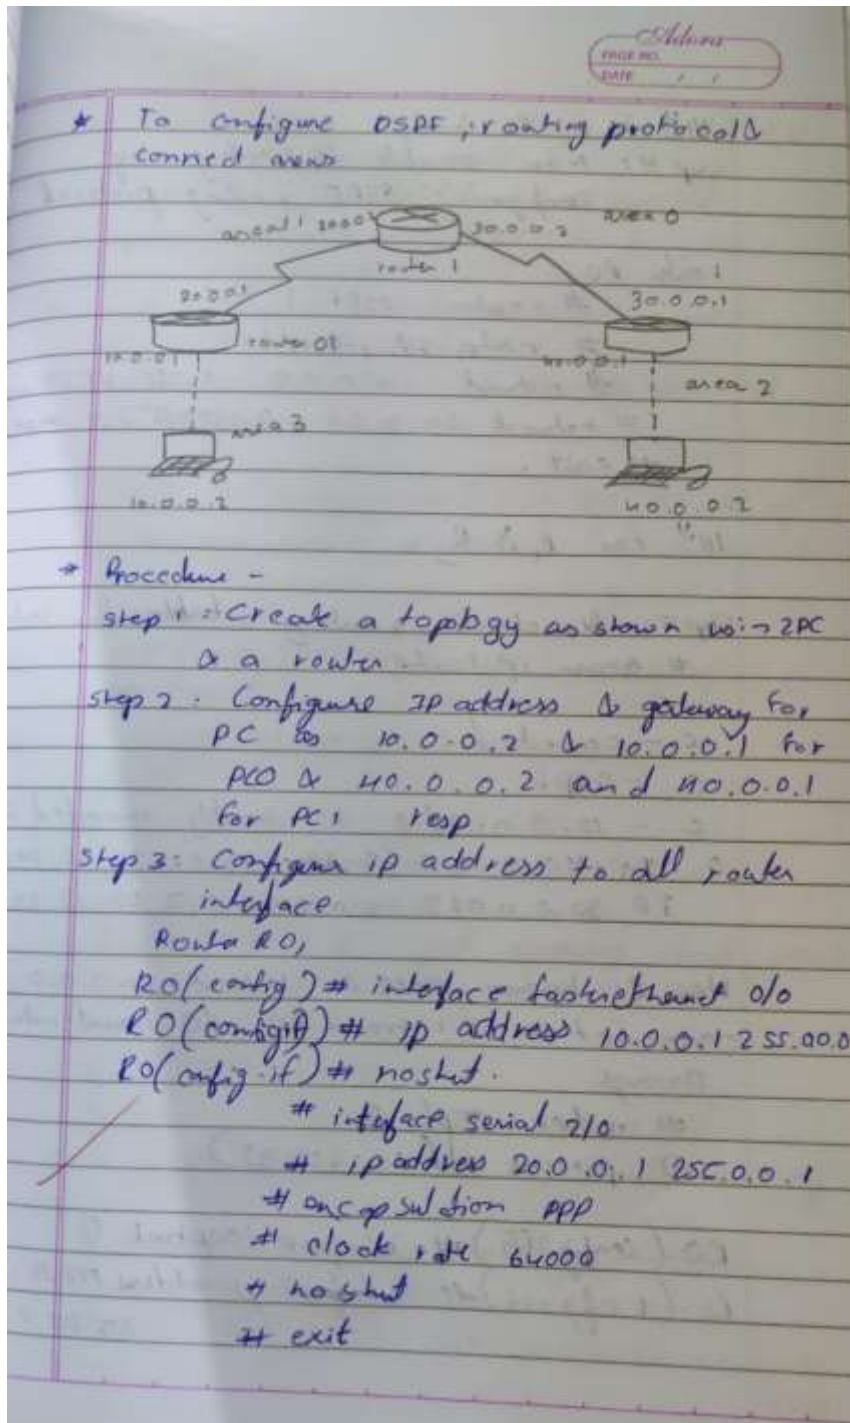 Adora
PAGE NO.
DATE / /
* To configure OSPF, routing protocol &
connect areas
area 1 20.0.0. 30.0.0.2 area 0
router 1
20.0.0.1 30.0.0.1
router 01
10.0.0.1 40.0.0.1
area 2
area 3
10.0.0.2 40.0.0.2
* Procedure -
step 1 : Create a topology as shown using 2PC
& a router
step 2 : Configure IP address & gateway for
PC as 10.0.0.2 & 10.0.0.1 for
PC0 & 40.0.0.2 and 40.0.0.1
for PC1 resp
step 3: Configure ip address to all router
interface
Router R0,
R0(config)# interface fastnethernet 0/0
R0(config-if)# ip address 10.0.0.1 255.00.0
R0(config-if)# noshut.
# interface serial 2/0
# ip address 20.0.0.1 255.0.0.1
# encapsulation PPP
# clock rate 64000
# noshut
# exit